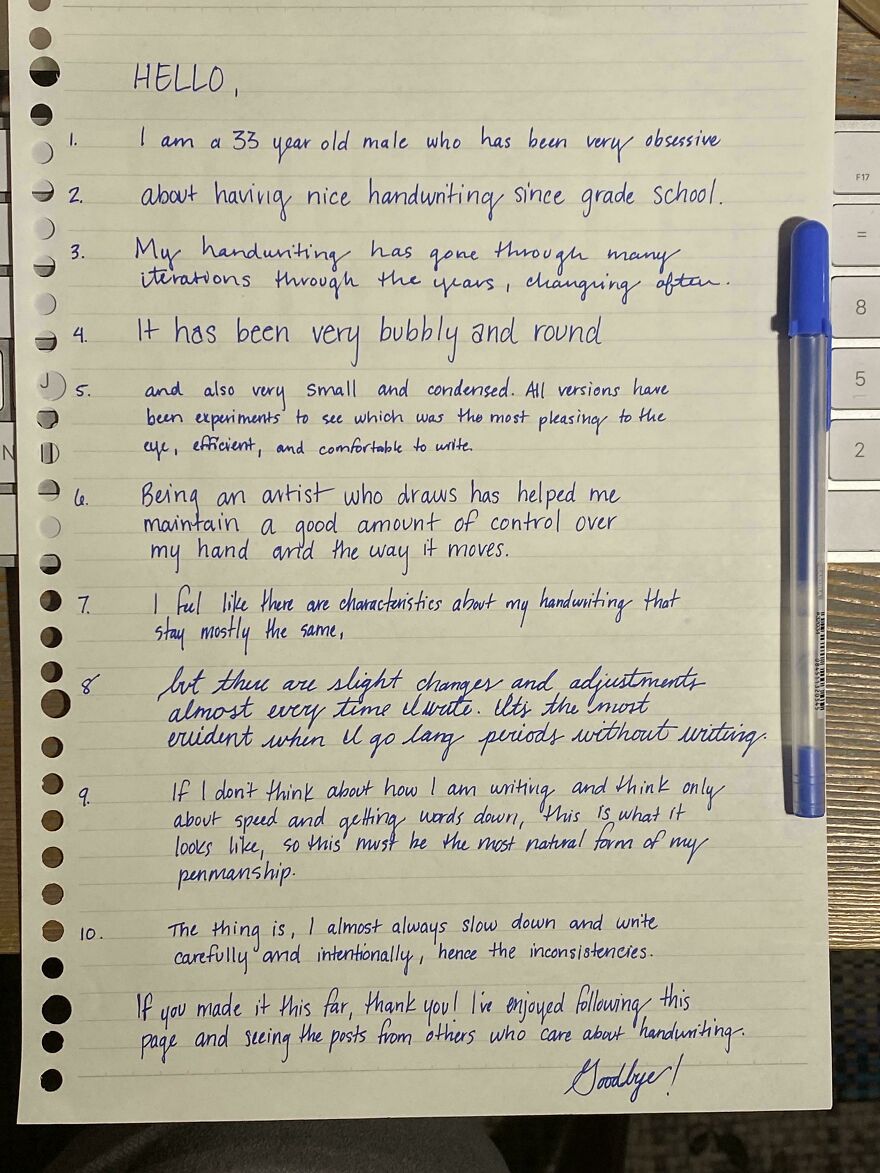 HELLO,
1. I am a 33 year old male who has been very obsessive
2. about having nice handwriting since grade school.
3. My handwriting has gone through many
iterations through the years, changing often.
4. It has been very bubbly and round
5. and also very small and condensed. All versions have
been experiments to see which was the most pleasing to the
eye, efficient, and comfortable to write.
6. Being an artist who draws has helped me
maintain a good amount of control over
my hand and the way it moves.
7. I feel like there are characteristics about my handwriting that
stay mostly the same,
8 but there are slight changes and adjustments
almost every time I write. Its the most
evident when I go long periods without writing.
9. If I don't think about how I am writing and think only
about speed and getting words down, this is what it
looks like, so this must be the most natural form of my
penmanship.
10. The thing is, I almost always slow down and write
carefully and intentionally, hence the inconsistencies.
If you made it this far, thank you! I've enjoyed following this
page and seeing the posts from others who care about handwriting.
Goodbye!
F17
=
8
5
2
J
N